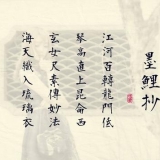 墨鯉抄
江河百轉龍門低
琴高直上昆侖西
玄女又素傳妙法
海天纖入琉璃衣